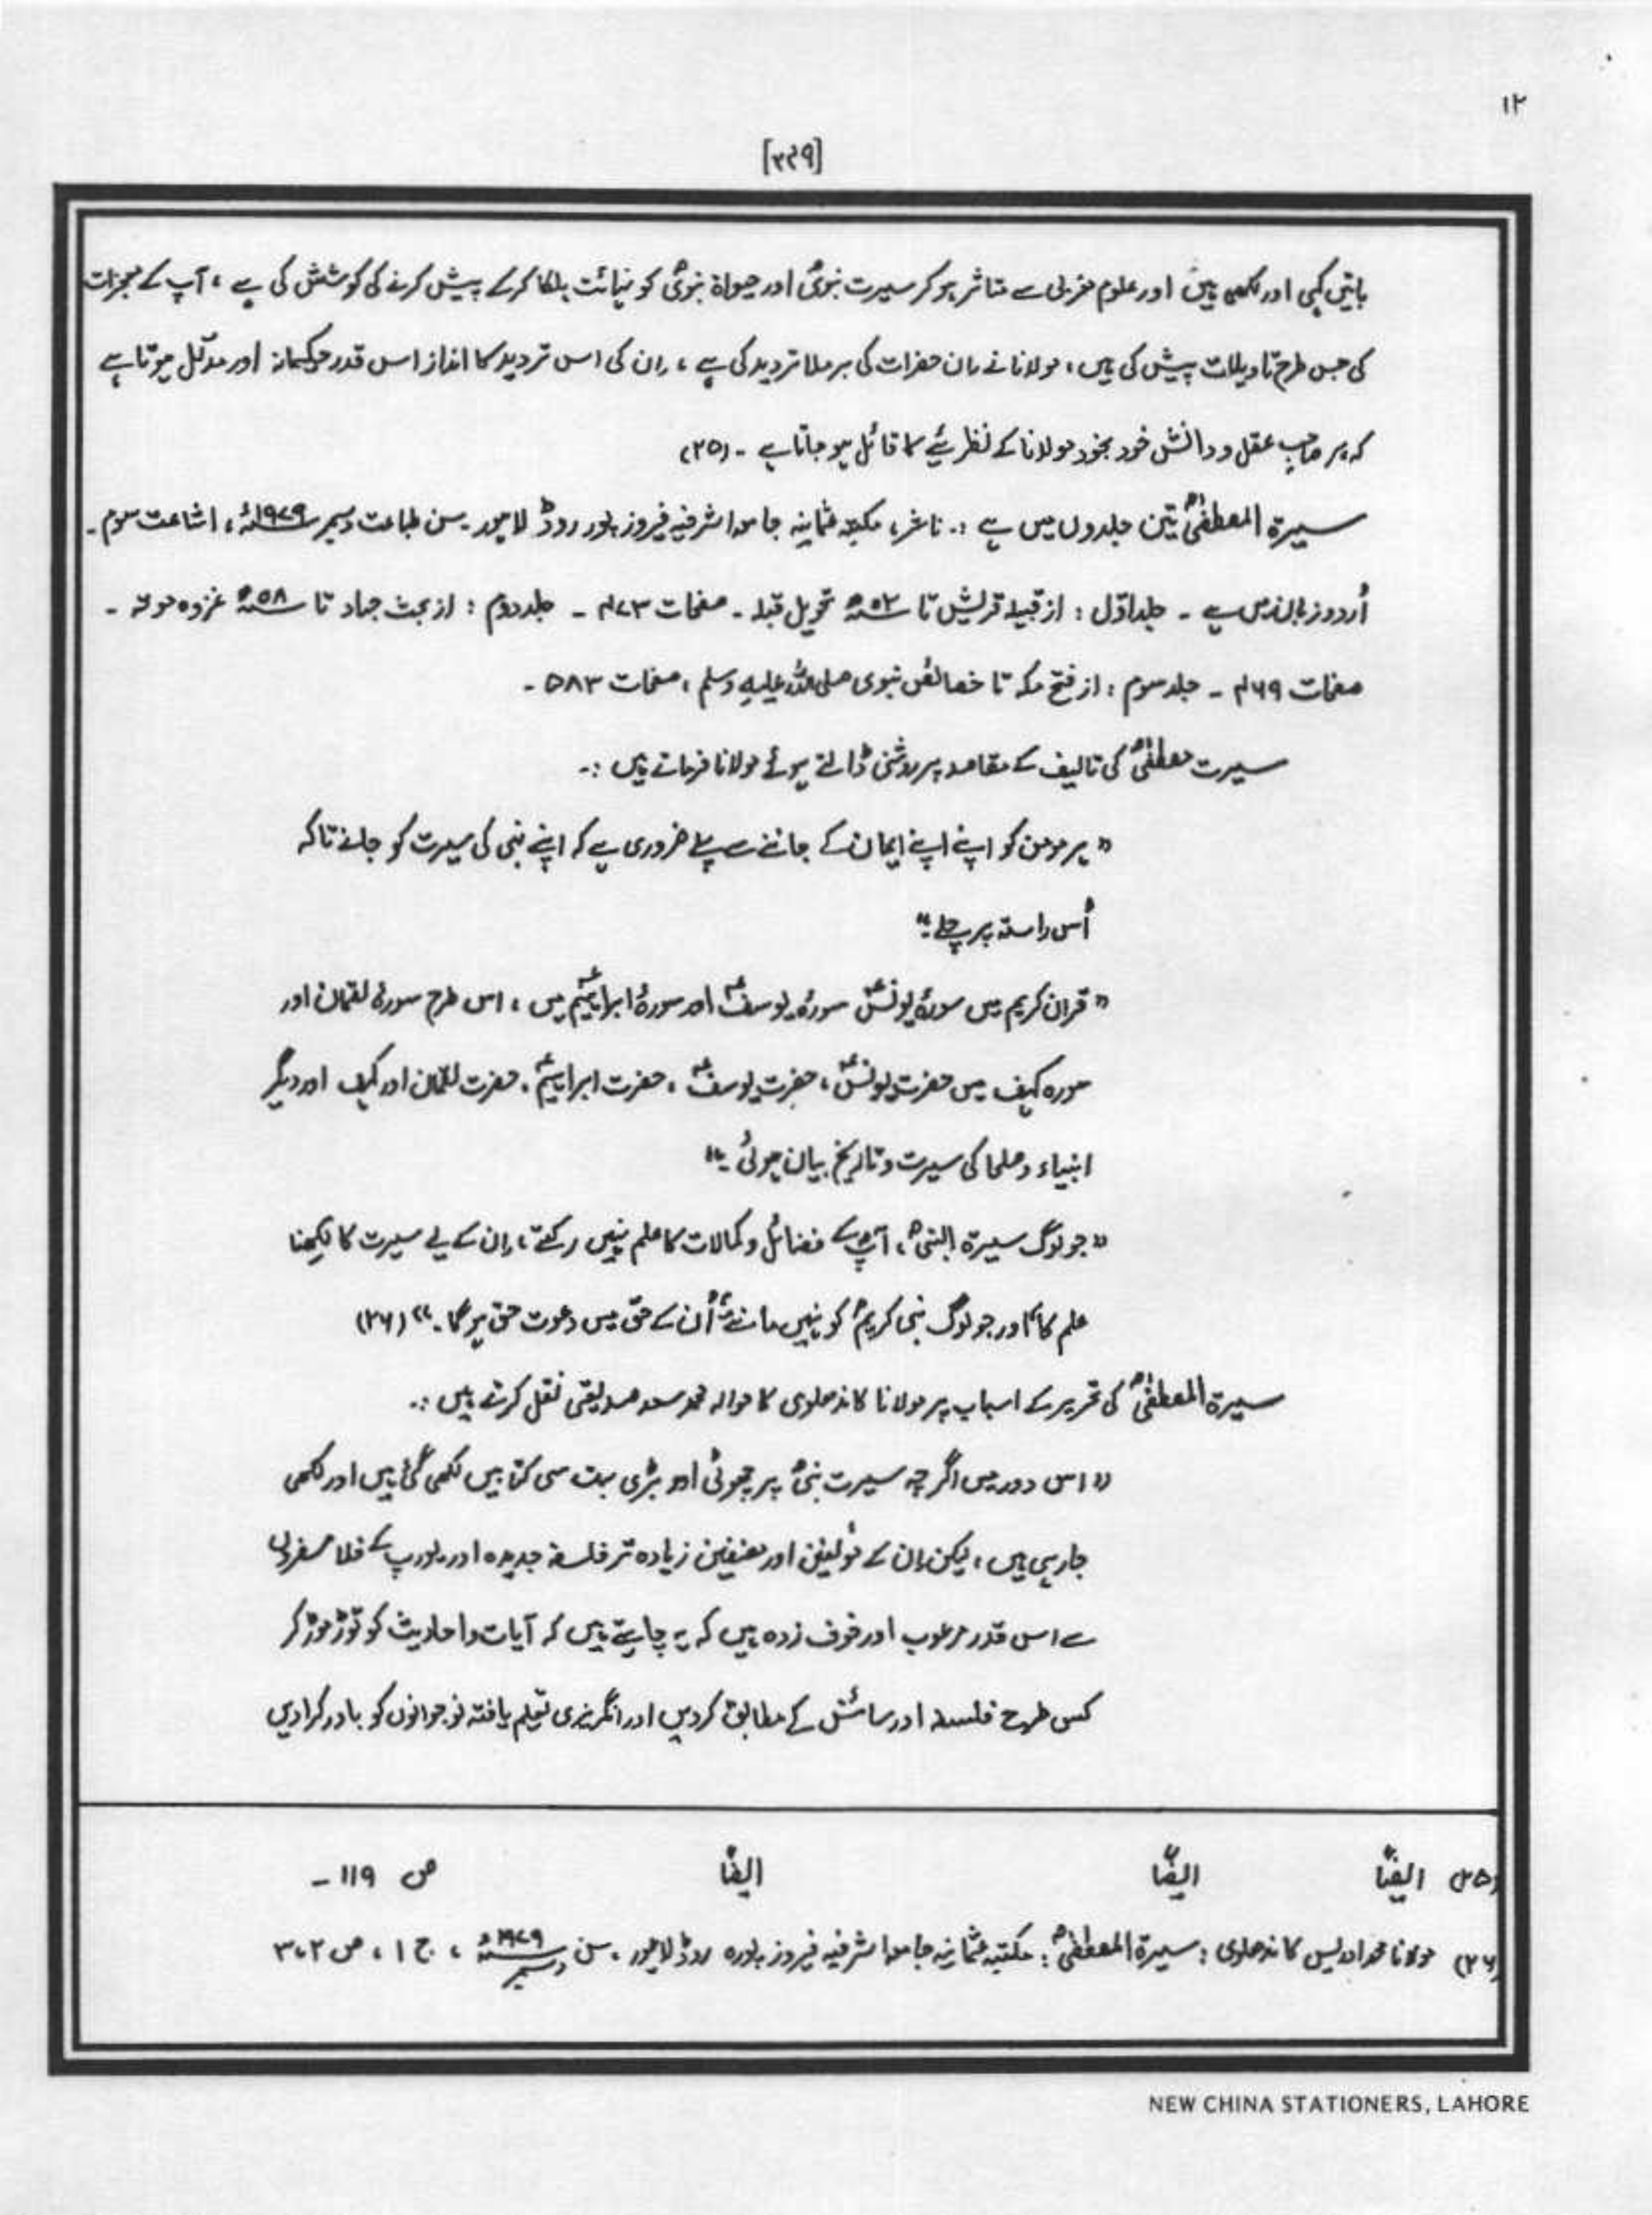 ۱۲
[۲۴۹]
باتیں کہی اور لکھی ہیں اور علوم مغربی سے متاثر ہو کر سیرت نبویؐ اور حیواۃ نبویؐ کو نہائت ہلکا کرکے پیش کرنے کی کوشش کی ہے ، آپ کے معجزات
کی جس طرح تاویلات پیش کی ہیں ، مولانا نے اِن حضرات کی برملا تردید کی ہے ، اِن کی اس تردید کا انداز اس قدر حکیمانہ اور مدلّل ہوتا ہے
کہ ہر صاحبِ عقل و دانش خود بخود مولانا کے نظریئے کا قائل ہو جاتا ہے ۔ (۲۵)
سیرۃ المصطفیٰؐ تین جلدوں میں ہے :۔ ناشر، مکتبہ عثمانیہ جامعہ اشرفیہ فیروز پور روڈ لاہور ۔ سن طباعت دسمبر ۱۹۷۹ء ، اشاعت سوم ۔
اُردو زبان میں ہے ۔ جلد اوّل : از قبیلہ قریش تا ۰۲ھ تحویل قبلہ ۔ صفحات ۴۷۳ ۔ جلد دوم : از بحث جہاد تا ۰۸ھ غزوہ موتہ ۔
صفحات ۴۶۹ ۔ جلد سوم : از فتح مکہ تا خصائص نبوی صلی اللہ علیہ وسلم ، صفحات ۵۸۳ ۔
سیرت مصطفیٰؐ کی تالیف کے مقاصد پر روشنی ڈالتے ہوئے مولانا فرماتے ہیں :۔
" ہر مومن کو اپنے اپنے ایمان کے جاننے سے پہلے ضروری ہے کہ اپنے نبی کی سیرت کو جانے تاکہ
اُس راستہ پر چلے ۔"
" قرآن کریم میں سورۂ یونسؑ سورۂ یوسفؑ اور سورۂ ابراہیمؑ میں ، اس طرح سورۂ لقمان اور
سورہ کہف میں حضرت یونسؑ ، حضرت یوسفؑ ، حضرت ابراہیمؑ ، حضرت لقمان اور کہف اور دیگر
انبیاء و صلحا کی سیرت و تاریخ بیان ہوئی ۔"
" جو لوگ سیرۃ النبیؐ ، آپؐ کے فضائل و کمالات کا علم نہیں رکھتے ، اِن کے لیے سیرت کا لکھنا
علم کا اور جو لوگ نبی کریمؐ کو نہیں مانتے اُن کے حق میں دعوت حق ہو گا ۔" (۲۶)
سیرۃ المصطفیٰؐ کی تحریر کے اسباب پر مولانا کاندھلوی کا حوالہ محمد سعد صدیقی نقل کرتے ہیں :۔
" اس دور میں اگرچہ سیرت نبیؐ پر چھوٹی اور بڑی بہت سی کتابیں لکھی گئی ہیں اور لکھی
جا رہی ہیں ، لیکن اِن کے مُولفین اور مصنفین زیادہ تر فلسفہ جدیدہ اور یورپ کے فلاسفروں
سے اس قدر مرعوب اور خوف زدہ ہیں کہ یہ چاہتے ہیں کہ آیات و احادیث کو توڑ موڑ کر
کسی طرح فلسفہ اور سائنس کے مطابق کردیں اور انگریزی تعلیم یافتہ نوجوانوں کو باور کرادیں
(۲۵) ایضًا ایضًا ایضًا ص ۱۱۹ ۔
(۲۶) مولانا محمد ادریس کاندھلوی : سیرۃ المصطفیٰؐ : مکتبہ عثمانیہ جامعہ اشرفیہ فیروز پورہ روڈ لاہور ، سن دسمبر ۱۹۷۹ء ، ج ۱ ، ص ۳،۲
NEW CHINA STATIONERS, LAHORE